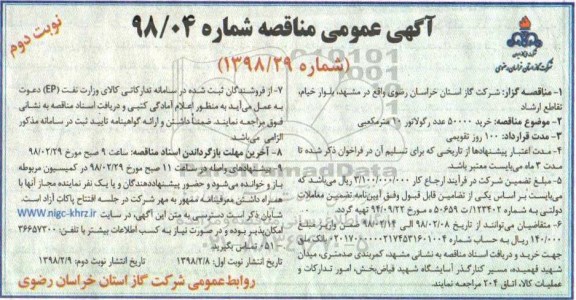 آگهی عمومی مناقصه شماره ۹۸/۰۴
(شماره ۱۳۹۸/۲۹)
نوبت دوم
شرکت گاز استان خراسان رضوی
۱- مناقصه گزار: شرکت گاز استان خراسان رضوی واقع در مشهد، بلوار خیام،
تقاطع ارشاد
۲- موضوع مناقصه: خرید ۵۰۰۰۰ عدد رگولاتور ۱۰ مترمکعبی
۳- مدت قرارداد: ۱۰۰ روز تقویمی
۴- مدت اعتبار پیشنهادها از تاریخی که برای تسلیم آن در فراخوان ذکر شده تا
مدت ۳ ماه می‌بایست معتبر باشد.
۵- مبلغ تضمین شرکت در فرآیند ارجاع کار ۳/۱۰۰/۰۰۰/۰۰۰ ریال می‌باشد که
می‌بایست بر اساس یکی از تضامین قابل قبول وفق آیین‌نامه تضمین معاملات
دولتی به شماره ۱۲۳۴۰۲/ت ۵۰۶۵۹ ه مورخ ۹۴/۰۹/۲۲ تهیه گردد.
۶- متقاضیان می‌توانند از تاریخ ۹۸/۰۲/۰۸ الی ۹۸/۰۲/۱۴ ضمن واریز مبلغ
۱۴۰/۰۰۰ ریال به حساب شماره
جهت خرید و دریافت اسناد مناقصه به نشانی مشهد، کمربندی صدمتری، میدان
شهید فهمیده، مسیر کنارگذر آسایشگاه شهید فیاض‌بخش، امور تدارکات و
عملیات کالا، اتاق ۲۰۴ مراجعه نمایند.
۷- از فروشندگان ثبت شده در سامانه تدارکاتی کالای وزارت نفت (EP) دعوت
به عمل می‌آید به منظور اعلام آمادگی کتبی و دریافت اسناد مناقصه به نشانی
فوق مراجعه نمایند. ضمناً داشتن و ارائه گواهینامه تایید ثبت در سامانه مذکور
الزامی می‌باشد.
۸- آخرین مهلت بازگرداندن اسناد مناقصه: ساعت ۹ صبح مورخ ۹۸/۰۲/۲۹
۹- پیشنهادهای واصله در ساعت ۱۱ صبح مورخ ۹۸/۰۲/۲۹ در کمیسیون مربوطه
باز و خوانده می‌شود و حضور پیشنهاددهندگان و یا یک نفر نماینده مجاز آنها با
همراه داشتن معرفینامه ممهور به مهر شرکت در جلسه افتتاح پاکات آزاد است.
شایان ذکر است دسترسی به متن این آگهی، در سایت www.nigc-khrz.ir
امکان‌پذیر بوده و در صورت نیاز به کسب اطلاعات بیشتر با تلفن: ۳۶۶۵۷۳۰۰
-۰۵۱ تماس بگیرید.
تاریخ انتشار نوبت اول: ۱۳۹۸/۲/۸ تاریخ انتشار نوبت دوم: ۱۳۹۸/۲/۹
روابط عمومی شرکت گاز استان خراسان رضوی